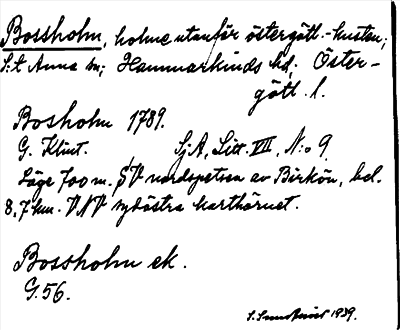 Bossholm, holme utanför östergötl.-kusten;
S:t Anna sn; Hammarkinds hd; Öster-
götl. l.
Bosholm 1789.
G. Klint. SjA, Litt. VII, N:o 9
Läge 700 m. SV nordspetsen av Birkön, bel.
8,7 km. VNV sydöstra karthörnet.
Bossholm ek.
G.56.
1939.